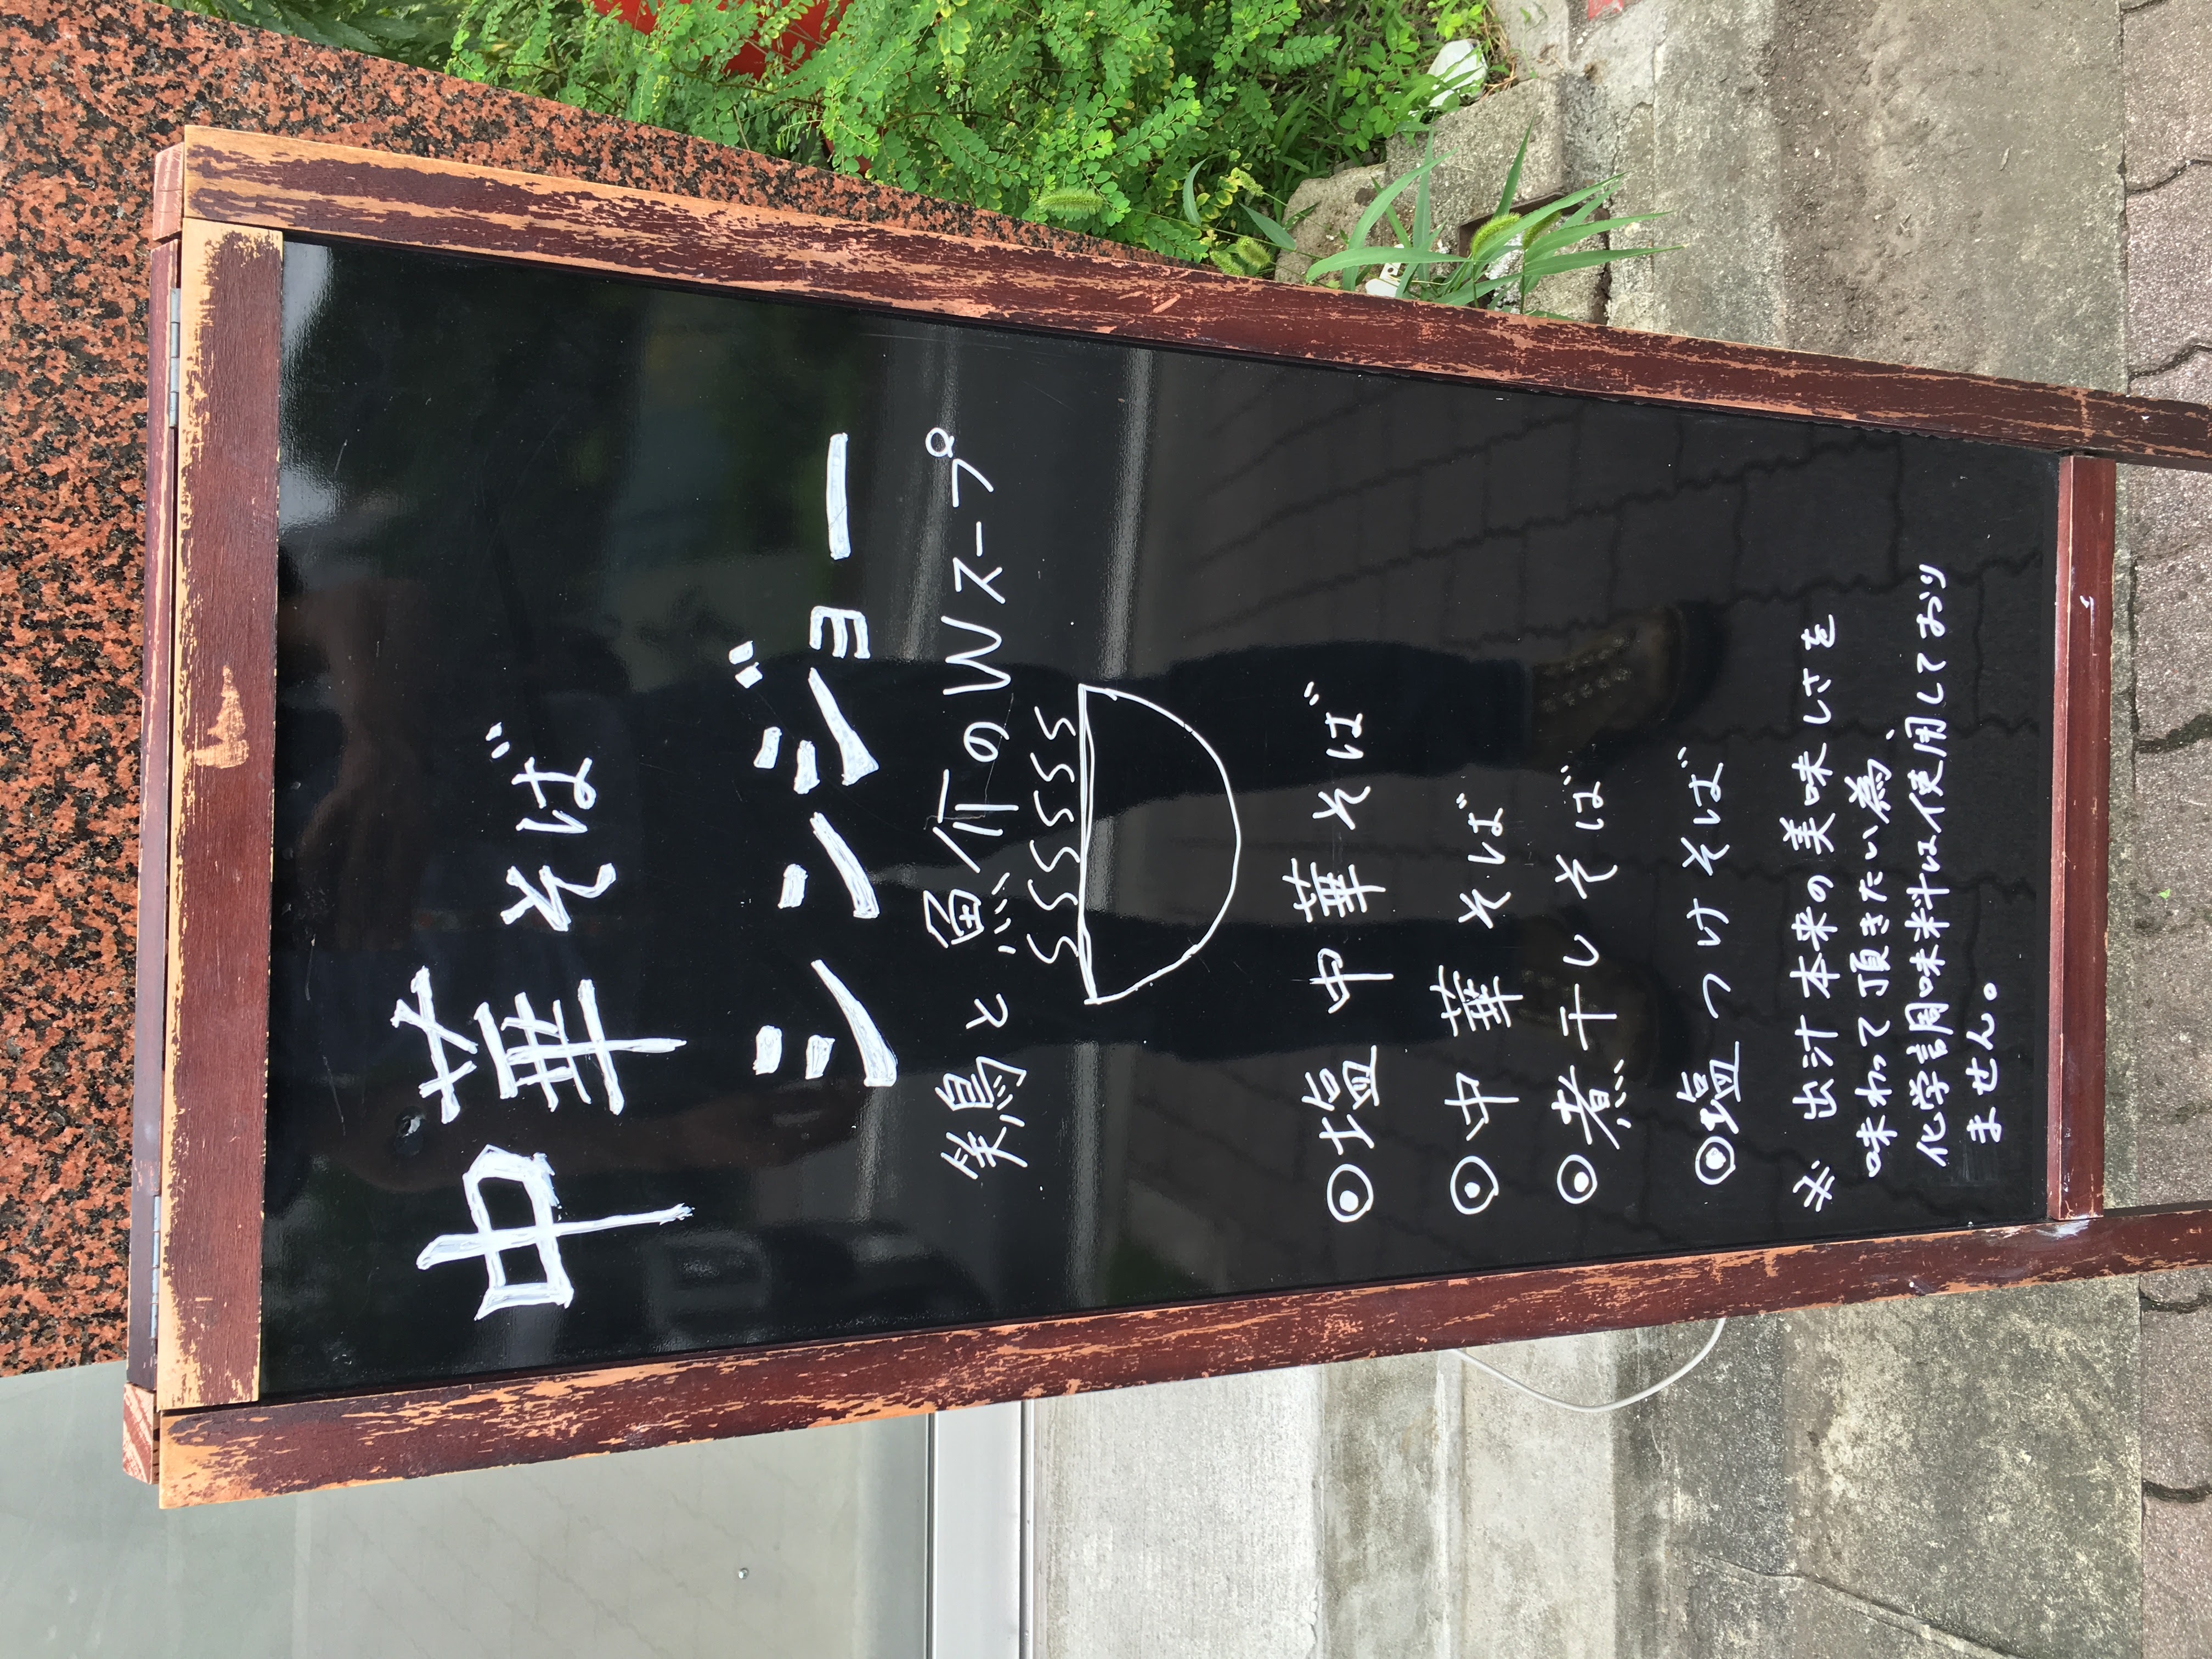 中華そば
シンジョー
鶏と魚介のWスープ
◎塩中華そば
◎中華そば
◎煮干しそば
◎塩つけそば
※出汁本来の美味しさを
味わって頂きたい為、
化学調味料は使用しており
ません。